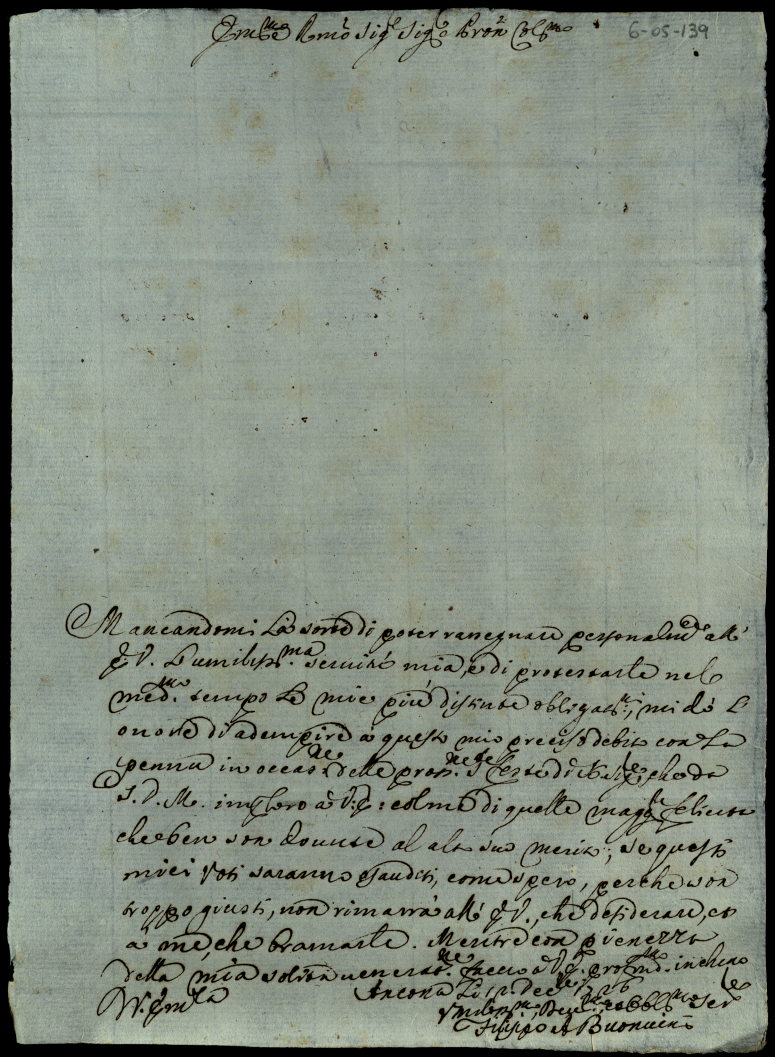 Em.mo e Rmo Sig.re Sig.re Pron. Col.mo
6-05-139
Mancandomi la sorte di poter rassegnare personalm.e all'
E V. L'umiliss.ma servitù mia, e di protestarle nel
med.mo tempo le mie più distinte obligaz.ni, mi dò l'
onore di adempire à questo mio preciso debito con la
penna in occas.ne delle pross.me feste di N. S.re, che da
S. D. M. imploro à V. E: colme di quelle magg.ri felicità
che ben son dovute al alto suo merito; se questi
miei voti saranno esauditi, come spero, perche son
troppo giusti, non rimarrà all' E V., che desiderare, et
à me, che bramarle. Mentre con pienezza
della mia solita veneraz.ne faccio à V. E. prof.ma inchino
Ancona li 12 Dec.re 1726
V. Em.za
Umiliss.mo Dev.mo et Obbl.mo Ser.re
Filippo A Buonvis